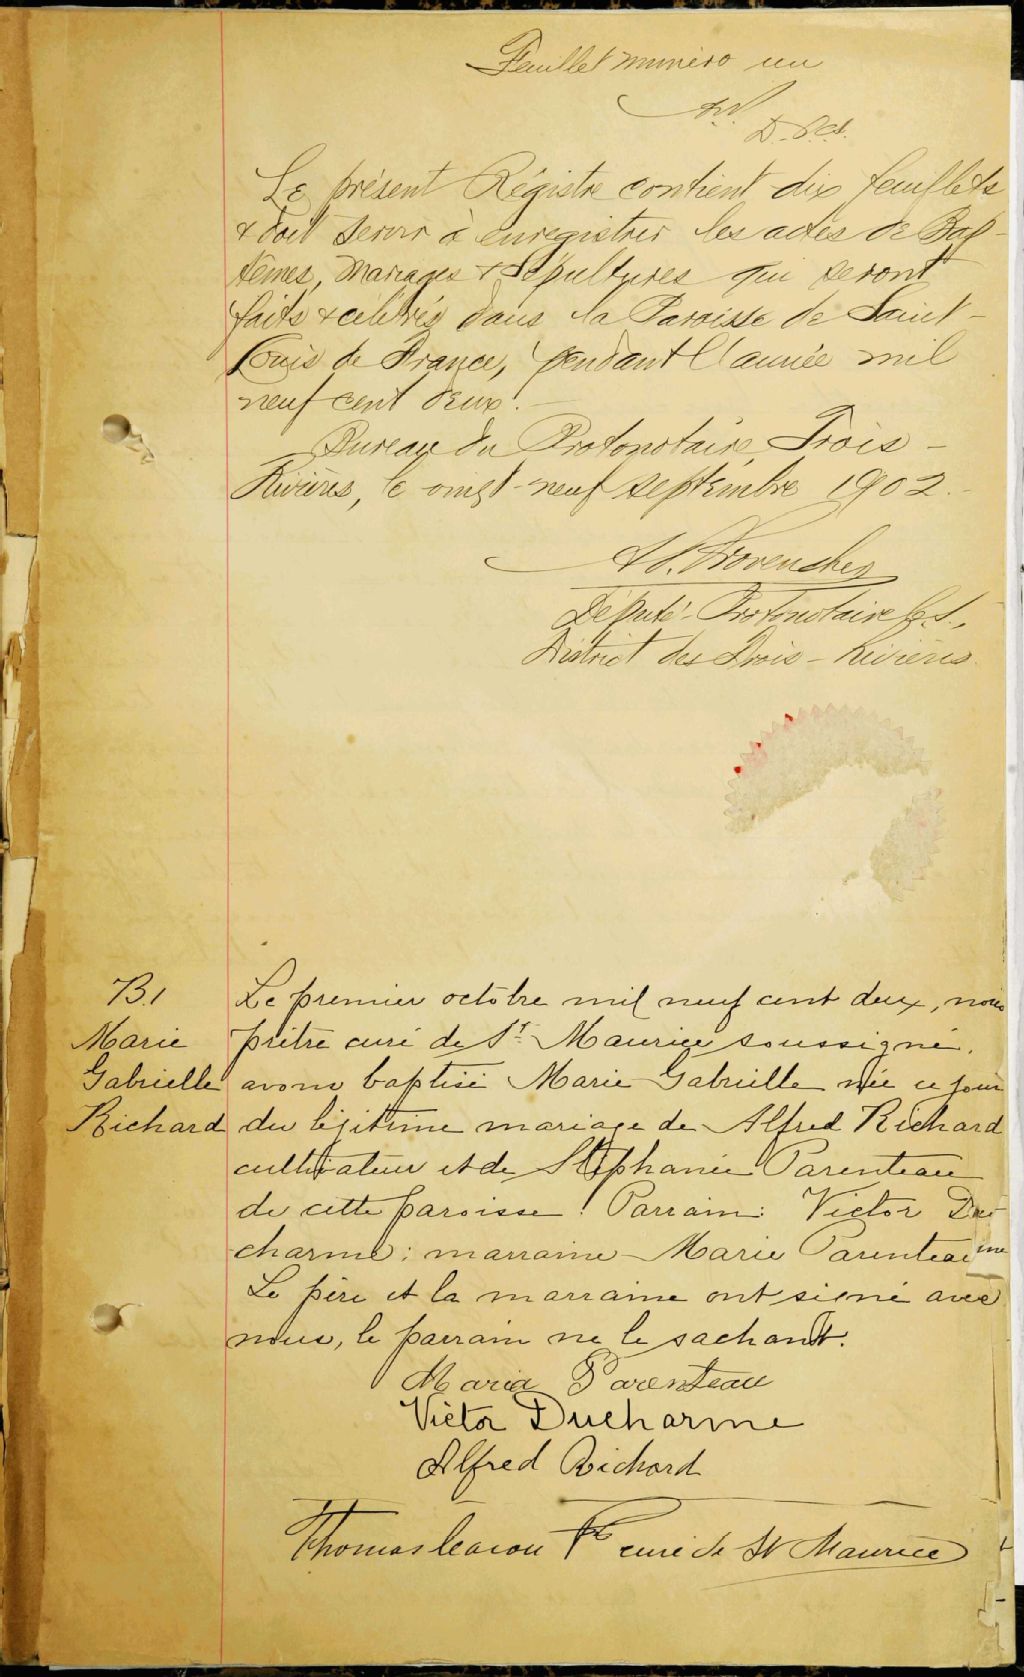 Feuillet numéro un
D. P.C.S.
Le présent Régistre contient dix feuillets
& doit servir à enregistrer les actes de Bap-
têmes, Mariages & Sépultures qui seront
faits & célébrés dans la Paroisse de Saint-
Louis de France, pendant l'année mil
neuf cent deux.
Bureau du Protonotaire, Trois-
Rivières, le vingt-neuf septembre 1902.
Provencher
Député-Protonotaire C.S.,
District des Trois-Rivières
B.1
Marie
Gabrielle
Richard
Le premier octobre mil neuf cent deux, nous
prêtre curé de St Maurice soussigné,
avons baptisé Marie Gabrielle née ce jour
du légitime mariage de Alfred Richard
cultivateur et de Stéphanie Parenteau
de cette paroisse. Parrain: Victor Du-
charme; marraine Marie Parenteau
Le père et la marraine ont signé avec
nous, le parrain ne le sachant.
Maria Parenteau
Victor Ducharme
Alfred Richard
Thomas Caron Ptre curé de St Maurice